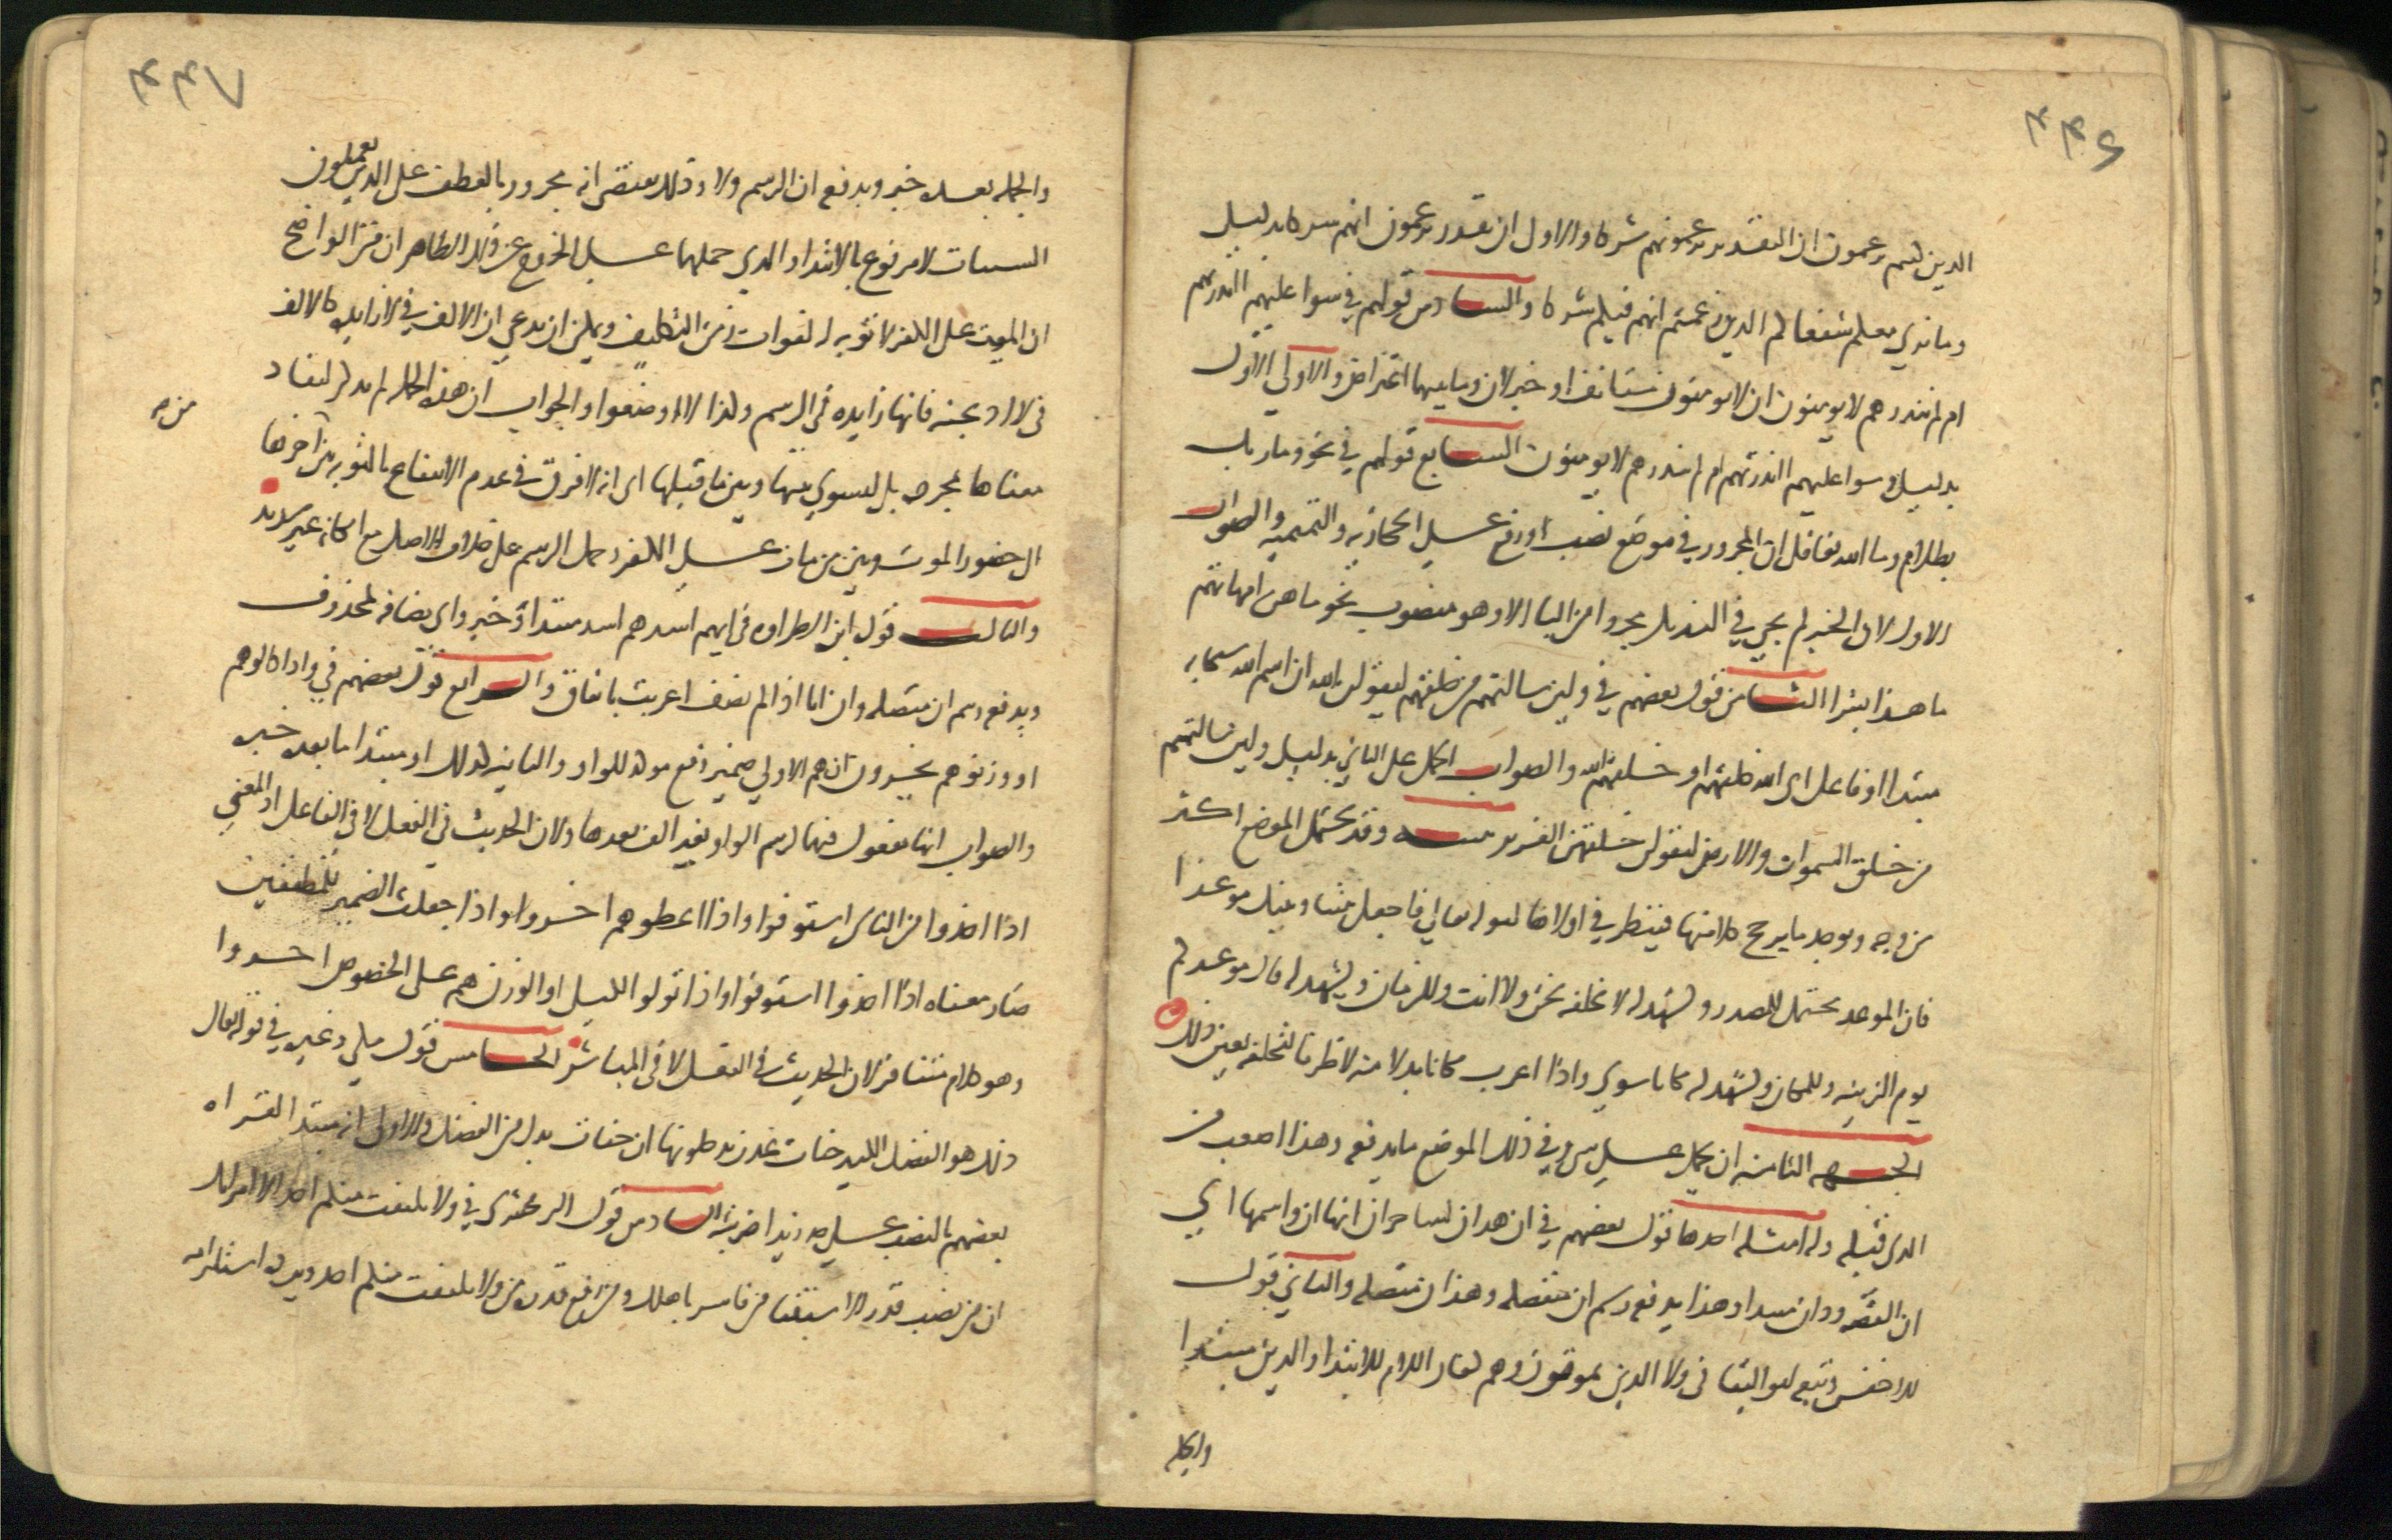 ٤٤٦
الذين كنتم تزعمون ان التقدير تزعمونهم شركا والاولى ان يقدر تزعمون انهم شركا بدليل
وما نرى معكم شفعاكم الذين زعمتم انهم فيكم شركا والسادس قولهم في سوا عليهم اانذرتهم
ام لم تنذرهم لا يومنون ان لا يومنون مستانف او خبر لان وما بينهما اعتراض والاولى الاول
بدليل وسوا عليهم اانذرتهم ام لم تنذرهم لا يومنون السابع قولهم في نحو وما ربك
بظلام وما الله بغافل ان المجرور في موضع نصب او رفع على الحجازيه والتميميه والصواب
الاول لان الخبر لم يجي في التنزيل مجردا من البا الا وهو منصوب نحو ما هن امهاتهم
ما هذا بشرا الثامن قول بعضهم في ولين سالتهم من خلقهم ليقولن الله ان اسم الله سبحانه
مبتدا او فاعل اي الله خلقهم او خلقهم الله والصواب الحمل على الثاني بدليل ولين سالتهم
من خلق السموات والارض ليقولن خلقهن العزيز تنبيه وقد يحتمل الموضع اكثر
من وجه ويوجد ما يرجح كلا منها فينظر في اولاها كقوله تعالى فاجعل بيننا وبينك موعدا
فان الموعد يحتمل للمصدر ويشهد له لا نخلفه نحن ولا انت وللزمان ويشهد له قال موعدكم
يوم الزينه وللمكان ويشهد له مكانا سوى واذا اعرب مكانا بدلا منه لا ظرفا لنخلفه تعين ذلك
الجهه الثامنه ان يحمل على شي وفي ذلك الموضع ما يدفعه وهذا اصعب من
الذي قبله وله امثله احدها قول بعضهم في ان هذان لساحران انها ان واسمها اي
ان القصه وذان مبتدا وهذا يدفعه رسم ان منفصله وهذان متصله والثاني قول
الاخفش وتبعه ابو البقا في ولا الذين يموتون وهم كفار ان اللام للابتدا والذين مبتدا
والجمله
٤٤٧
والجمله بعده خبر ويدفعه ان الرسم ولا وذلك يقتضي انه مجرور بالعطف على الذين يعملون
السيات لا مرفوع بالابتدا والذي حملهما على الخروج عن ذلك الظاهر ان من الواضح
ان الميت على الكفر لا توبه له لفوات زمن التكليف ويمكن ان يدعي ان الالف في لا زايده كالالف
في لااذبحنه فانها زايده في الرسم وكذا لااوضعوا والجواب ان هذه الجمله لم تذكر ليفاد
معناها بمجرده بل ليسوي بينها وبين ما قبلها اي انه لا فرق في عدم الانتفاع بالتوبه بين من اخرها
الى حضور الموت وبين من مات على الكفر وحمل الرسم على خلاف الاصل مع امكانه غير سديد
والثالث قول ابن الطراوه في ايهم اشد هم اشد مبتدا وخبر واي مضافه لمحذوف
ويدفعه رسم ان متصله وان ايا اذا لم تضف اعربت باتفاق والرابع قول بعضهم في واذا كالوهم
او وزنوهم يخسرون ان هم الاولى ضمير رفع موكد للواو والثانيه كذلك او مبتدا ما بعده خبره
والصواب انها مفعول فيهما لرسم الواو بغير الف بعدها ولان الحديث في الفعل لا في الفاعل اذ المعنى
اذا اخذوا من الناس استوفوا واذا اعطوهم اخسروا واذا جعلت الضمير للمطففين
صار معناه اذا اخذوا استوفوا واذا تولوا الكيل او الوزن هم على الخصوص اخسروا
وهو كلام متنافر لان الحديث في الفعل لا في المباشر الخامس قول مكي وغيره في قوله تعالى
ذلك هو الفضل الكبير جنات عدن يدخلونها ان جنات بدل من الفضل والاولى انه مبتدا لقراه
بعضهم بالنصب على حد زيدا ضربته السادس قول الزمخشري في ولا يلتفت منكم احد الا امراتك
ان من نصب قدر الاستثنا من فاسر باهلك ومن رفع قدره من ولا يلتفت منكم احد ويرد استلزامه